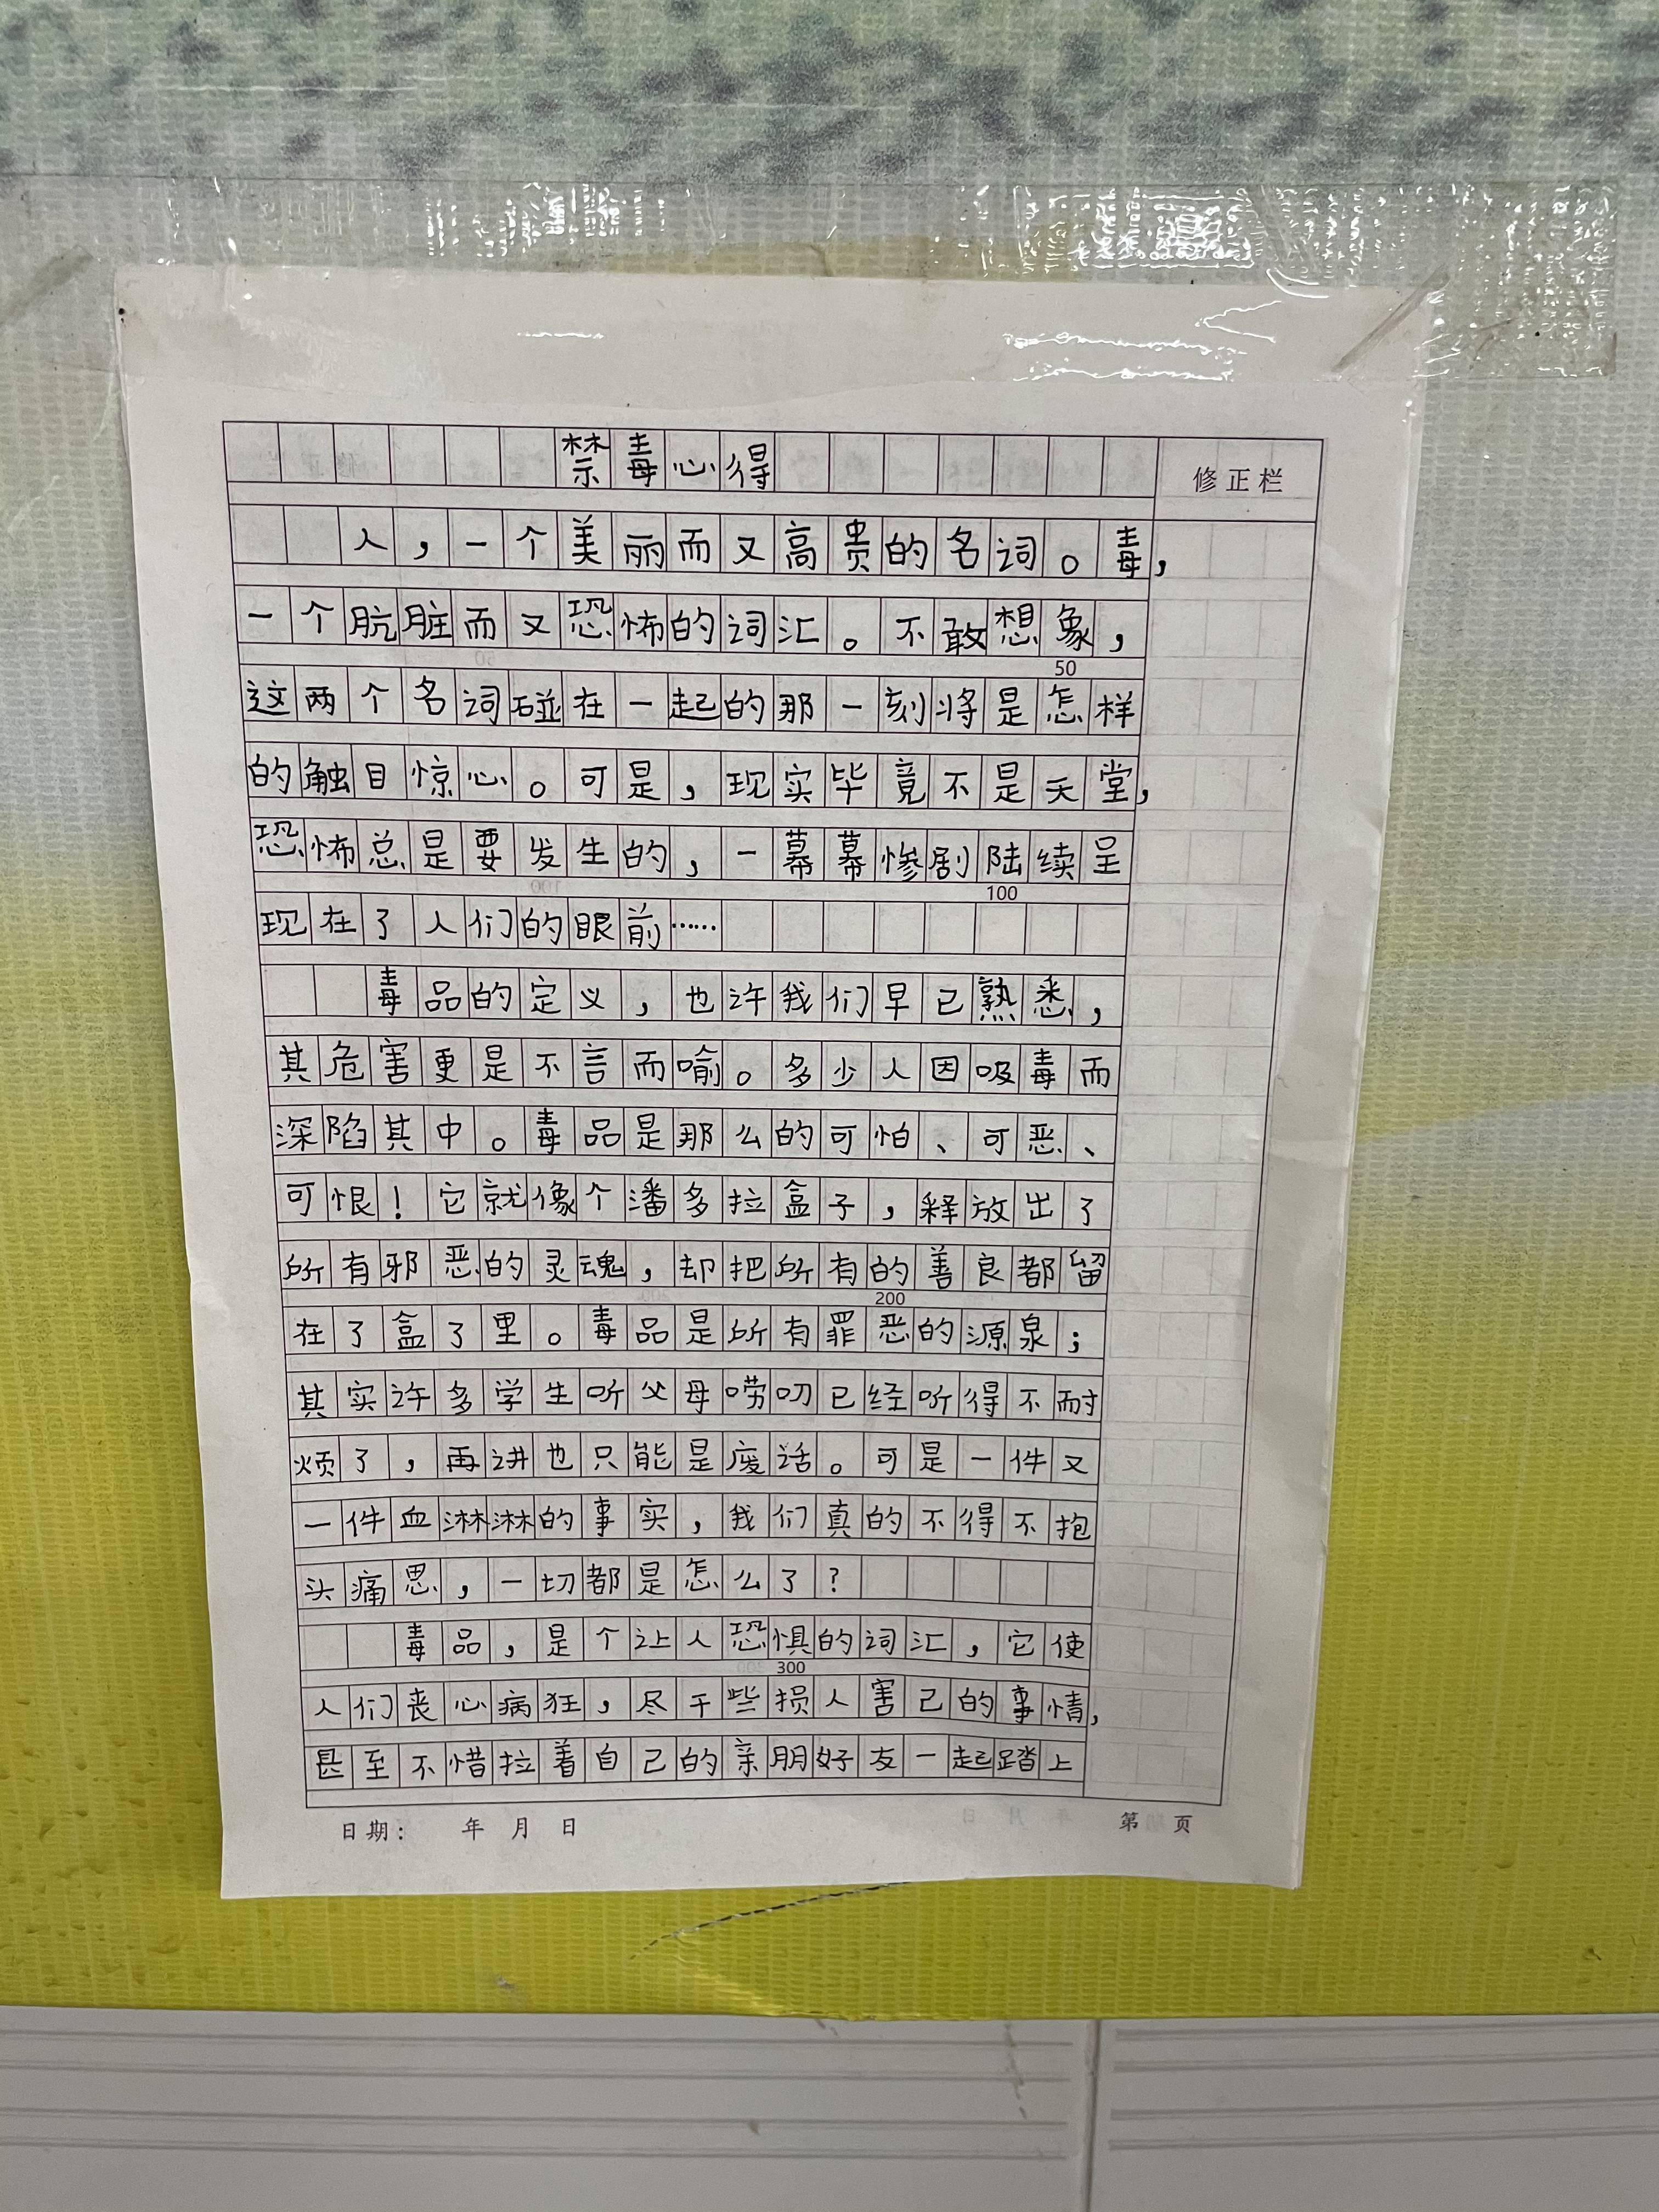 禁毒心得
修正栏
人，一个美丽而又高贵的名词。毒，
一个肮脏而又恐怖的词汇。不敢想象，
50
这两个名词碰在一起的那一刻将是怎样
的触目惊心。可是，现实毕竟不是天堂，
恐怖总是要发生的，一幕幕惨剧陆续呈
100
现在了人们的眼前……
毒品的定义，也许我们早已熟悉，
其危害更是不言而喻。多少人因吸毒而
深陷其中。毒品是那么的可怕、可恶、
可恨！它就像个潘多拉盒子，释放出了
所有邪恶的灵魂，却把所有的善良都留
200
在了盒了里。毒品是所有罪恶的源泉；
其实许多学生听父母唠叨已经听得不耐
烦了，再讲也只能是废话。可是一件又
一件血淋淋的事实，我们真的不得不抱
头痛思，一切都是怎么了？
毒品，是个让人恐惧的词汇，它使
300
人们丧心病狂，尽干些损人害己的事情，
甚至不惜拉着自己的亲朋好友一起踏上
日期： 年 月 日
第 页